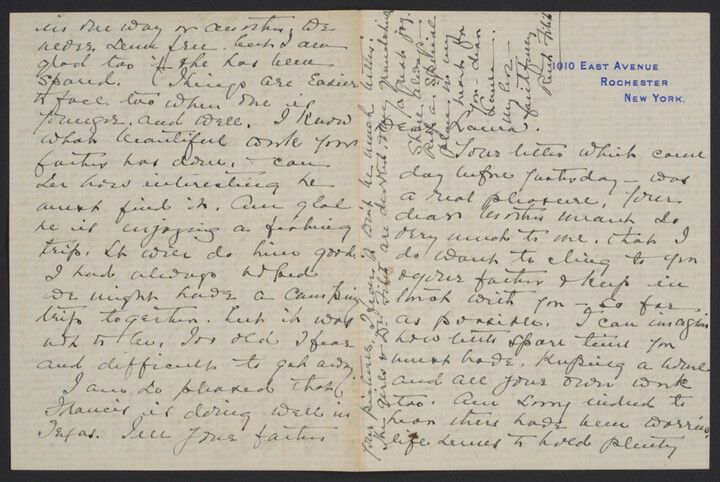 1010 EAST AVENUE
ROCHESTER
NEW YORK.
Dear Laura.
Your letter which came
day before yesterday - was
a real pleasure. Your
dear mother meant so
very much to me. that I
do want to cling to you
& your father & keep in
touch with you - as far
as possible. I can imagine
how little spare time you
must have. Keeping a house
and all your own work
too. Am sorry indeed to
hear there have been worries
life seems to hold plenty
in one way or another, We
never seem free. but I am
glad too if she has been
spared. Things are easier
to face too when one is
younger. and well. I know
what beautiful work your
father has done, - can
see how interesting he
must find it. Am glad
he is enjoying a fishing
trip. It will do him good.
I had always hoped
we might have a camping
trip together. but it was
not to be. Too old I fear
and difficult to get away
I am so pleased that
Francis is doing well in
Texas. Tell your father
your pictures, I fear it won't be much better.
The girls & Dr. are
a great joy.
Share always
a special
place in my
heart for
you - dear
Laura.
My love -
faithfully